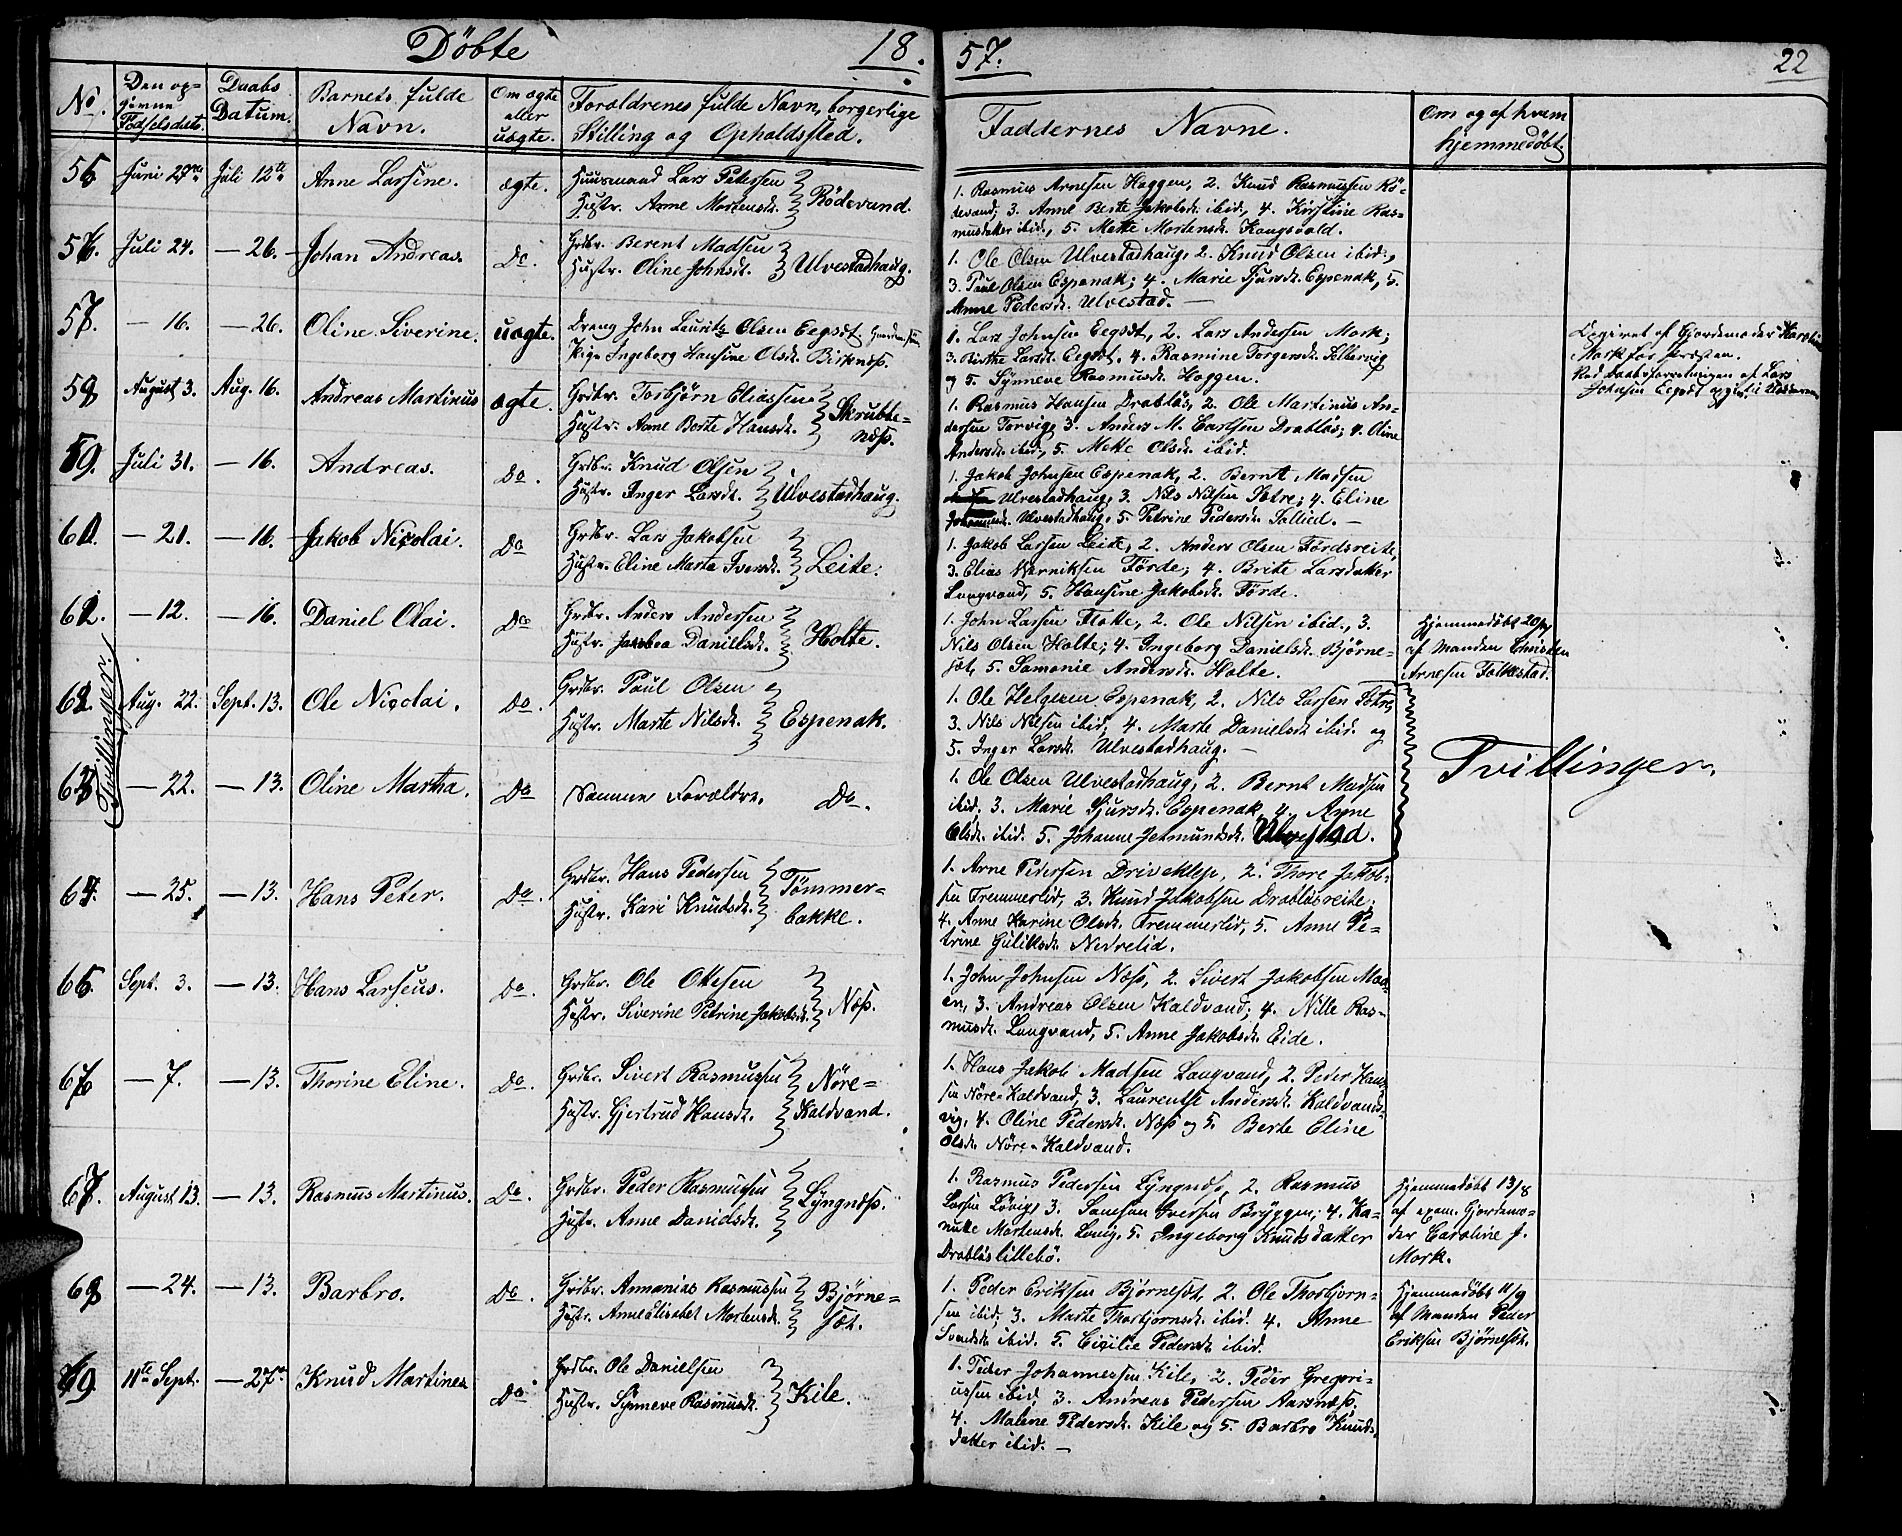 Döbte 18.
57. 22
No. Den opgivne Födselsdato. Daabs Datum. Barnets fulde Navn. Om ægte eller uægte. Forældrenes fulde Navn, borgerlige Stilling og Opholdssted. Faddernes Navne. Om og af hvem hjemmedöbt.
55. Juni 27 Juli 12te Anne Larsine. ægte. Huusmand Lars Pedersen
Hustr. Anne Mortensdr. Rödevand.
1. Rasmus Arnesen Haggen, 2. Knud Rasmussen Rö-
devand; 3. Anne Berte Jakobsdr. ibid., 4. Kirstine Ras-
musdatter ibid., 5. Mette Mortensdr. Kongsvold.
56. Juli 24. — 26. Johan Andreas. Do. Grdbr. Berent Madsen
Hustr. Oline Johnsdr. Ulvestadhaug.
1. Ole Olsen Ulvestadhaug, 2. Knud Olsen ibid.,
3. Paul Olsen Espenak; 4. Marie Sjursdr. Espenak, 5.
Anne Pedersdr. Ulvestad. —
57. — 16. — 26. Oline Siverine. uægte. Dreng John Lauritz Olsen Eegsæt
Pige Ingeborg Hansine Olsdr. Birknæss.
1. Lars Johnsen Eegsæt, 2. Lars Andersen Mork;
3. Birthe Larsdr. Eegsæt. 4. Rasmine Torgersdr.
og 5. Synneve Rasmusdr. Haggen.
Opgivet af Gjordemoder
Mork for Præsten.
Ved Daabsforretningen af Lars
Johnsen Eegsæt
58 August 3. Aug. 16. Andreas Martinus ægte. Grdbr. Torbjörn Eliassen
Hustr. Anne Berte Hansdr. Skrubbe-
næss.
1. Rasmus Hansen Drabløs, 2. Ole Martinus An-
dersen Torvig, 3. Anders M. Carlsen Drabløs; 4. Oline
Andersdr. ibid., 5. Mette Olsdr. ibid.
59. Juli 31. — 16. Andreas. Do. Grdbr. Knud Olsen
Hustr. Inger Larsdr. Ulvestadhaug.
1. Jakob Johnsen Espenak, 2. Bernt Madsen
Ulvestadhaug, 3. Nils Nilsen Sætre; 4. Eline
Ulvestadhaug, 5. Petrine Pedersdr. —
60. — 21. — 16. Jakob Nicolai. Do Grdbr. Lars Jakobsen
Hustr. Eline Marta Iversdr. Leite.
1. Jakob Larsen Leite, 2. Anders Olsen Fördsreite,
3. Elias Förde; 4. Brite Larsdatter
Langvand, 5. Hansine Jakobsdr. Förde.
61. — 12. — 16. Daniel Olai. Do Grdbr. Anders Andersen
Hustr. Jakobea Danielsdr. Holte.
1. John Larsen Flotte, 2. Ole Nilsen ibid., 3.
Nils Olsen Holte; 4. Ingeborg Danielsdr. Bjørne-
sæt, 5. Samonie Andersdr. Holte.
Hjemmedöbt 20/7
af Manden Christen
Arnesen Folkestad.
Tvillinger.
62. Aug. 22. Sept. 13. Ole Nicolai. Do. Grdbr. Paul Olsen
Hustr. Marte Nilsdr. Espenak.
1. Ole Helgesen Espenak, 2. Nils Larsen Sætre,
3. Nils Nilsen ibid, 4. Marte Danielsdr. ibid. og
5. Inger Larsdr. Ulvestadhaug. —
Tvillinger.
63 — 22. — 13. Oline Martha. Do Samme Forældre. Do.
1. Ole Olsen Ulvestadhaug, 2. Bernt Madsen
ibid, 3. Marie Sjursdr. Espenak, 4. Anne
Olsdr. ibid. 5. Johanne Jetmundsdr. Ulvestad.
64. — 25. — 13. Hans Peter. Do. Grdbr. Hans Pedersen
Hustr. Kari Knudsdr. Tömmer-
bakke.
1. Arne Pedersen Driveklep, 2. Thore Jakob-
sen Fremmerlid, 3. Knud Jakobsen Drabløsreite,
4. Anne Karine Olsdr. Fremmerlid, 5. Anne Pe-
trine Gulliksdr. Nedrelid.
65. Sept. 3. — 13. Hans Larseus. Do. Grdbr. Ole Ottesen
Hustr. Siverine Petrine Jakobsdr. Næss.
1. John Johnsen Næss, 2. Sivert Jakobsen Maa-
en, 3. Andreas Olsen Kaldvand; 4. Nille Ras-
musdr. Langvand, 5. Anne Jakobsdr. Eide.
66 — 7. — 13. Thorine Eline. Do. Grdbr. Sivert Rasmussen
Hustr. Gjertrud Hansdr. Nöre-
Kaldvand.
1. Hans Jakob Madsen Langvand, 2. Peder Han-
sen Nöre-Kaldvand, 3. Laurentse Andersdr. Kaldvands-
vig, 4. Oline Pedersdr. Næss og 5. Berte Eline
Olsdr. Nöre-Kaldvand.
67. August 13. — 13. Rasmus Martinus. Do. Grdbr. Peder Rasmussen
Hustr. Anne Danielsdr. Lyngnæss.
1. Rasmus Pedersen Lyngnæs, 2. Rasmus
Larsen Løvig, 3. Samson Iversen Bryggen, 4. Ka-
nutte Mortensdr. Løvig, 5. Ingeborg Knudsdatter
Drabløslillebö.
Hjemmedöbt 13/8
af exam. Gjordemo-
der Caroline J.
Mork.
68 — 24. — 13. Barbro. Do. Grdbr. Annanias Rasmussen
Hustr. Anne Elisabet Mortensdr. Bjørne-
sæt.
1. Peder Eriksen Bjørnesæt, 2. Ole Thorbjorn-
sen ibid; 3. Marte Thorbjornsdr. ibid. 4. Anne
Svendsdr. ibid. 5. Cicilie Pedersdr. ibid.
Hjemmedöbt 11/9
af Manden Peder
Eriksen Bjørnesæt.
69. 11te Sept. — 27de Knud Martines Do Grdbr. Ole Danielsen
Hustr. Synneve Rasmusdr. Kile.
1. Peder Johannessen Kile, 2. Peder Gregori-
ussen ibid, 3. Andreas Pedersen Aarsnæss,
4. Malene Pedersdr. Kile og 5. Barbro Knuds-
datter ibid. —